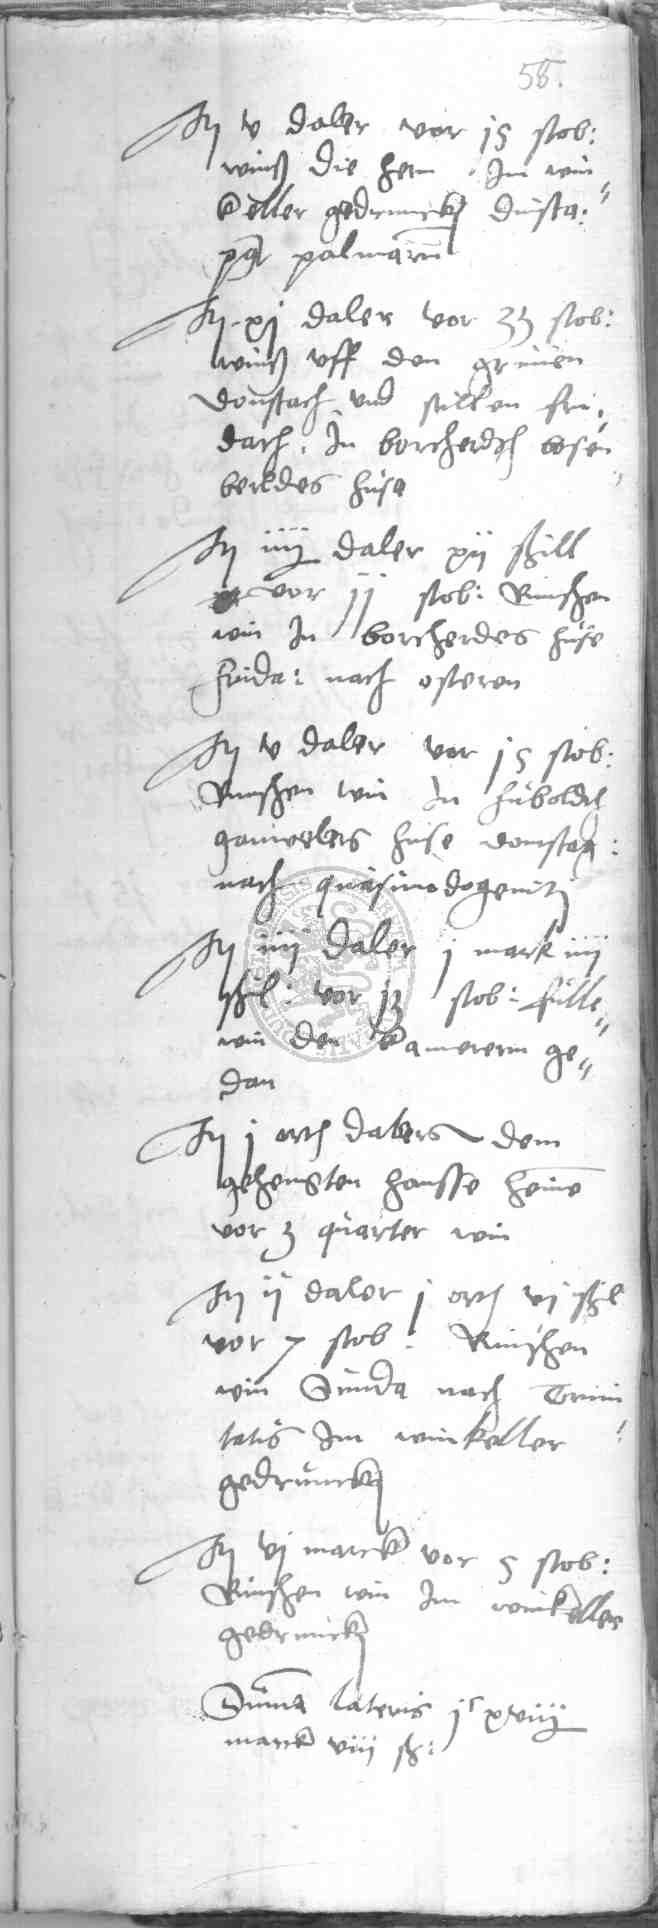 58.
It v daler vor 15 stob:
winß die hern Im win
keller gedruncken dinsta:
post palmarum
It xj daler vor 33 stob:
winß vff den grunen
donstach vnd stillen fri
dach. In borcherdes bosen
berkdes huse
It iiij daler xij schill
vor 11 stob: Rinschen
win In borcherdes huse
frida: nach osteren
It v daler vor 15 stob:
Rinschen win In huboldes
huse donstag:
nach quasimodogeniti
It iiij daler j mark iiij
schil: vor 13 stob: fulle
win den kamerern ge
dan
It j ort dalers dem
hansse heine
vor 3 quarter win
It ij daler j ort vj schl
vor 7 stob: Rinschen
win Sunda nach Trini
tatis Im winkeller
gedruncken
It vj marck vor 5 stob:
Rinschen win Im winkeller
gedruncken
Summa lateris jc xviij
marck viij sh: